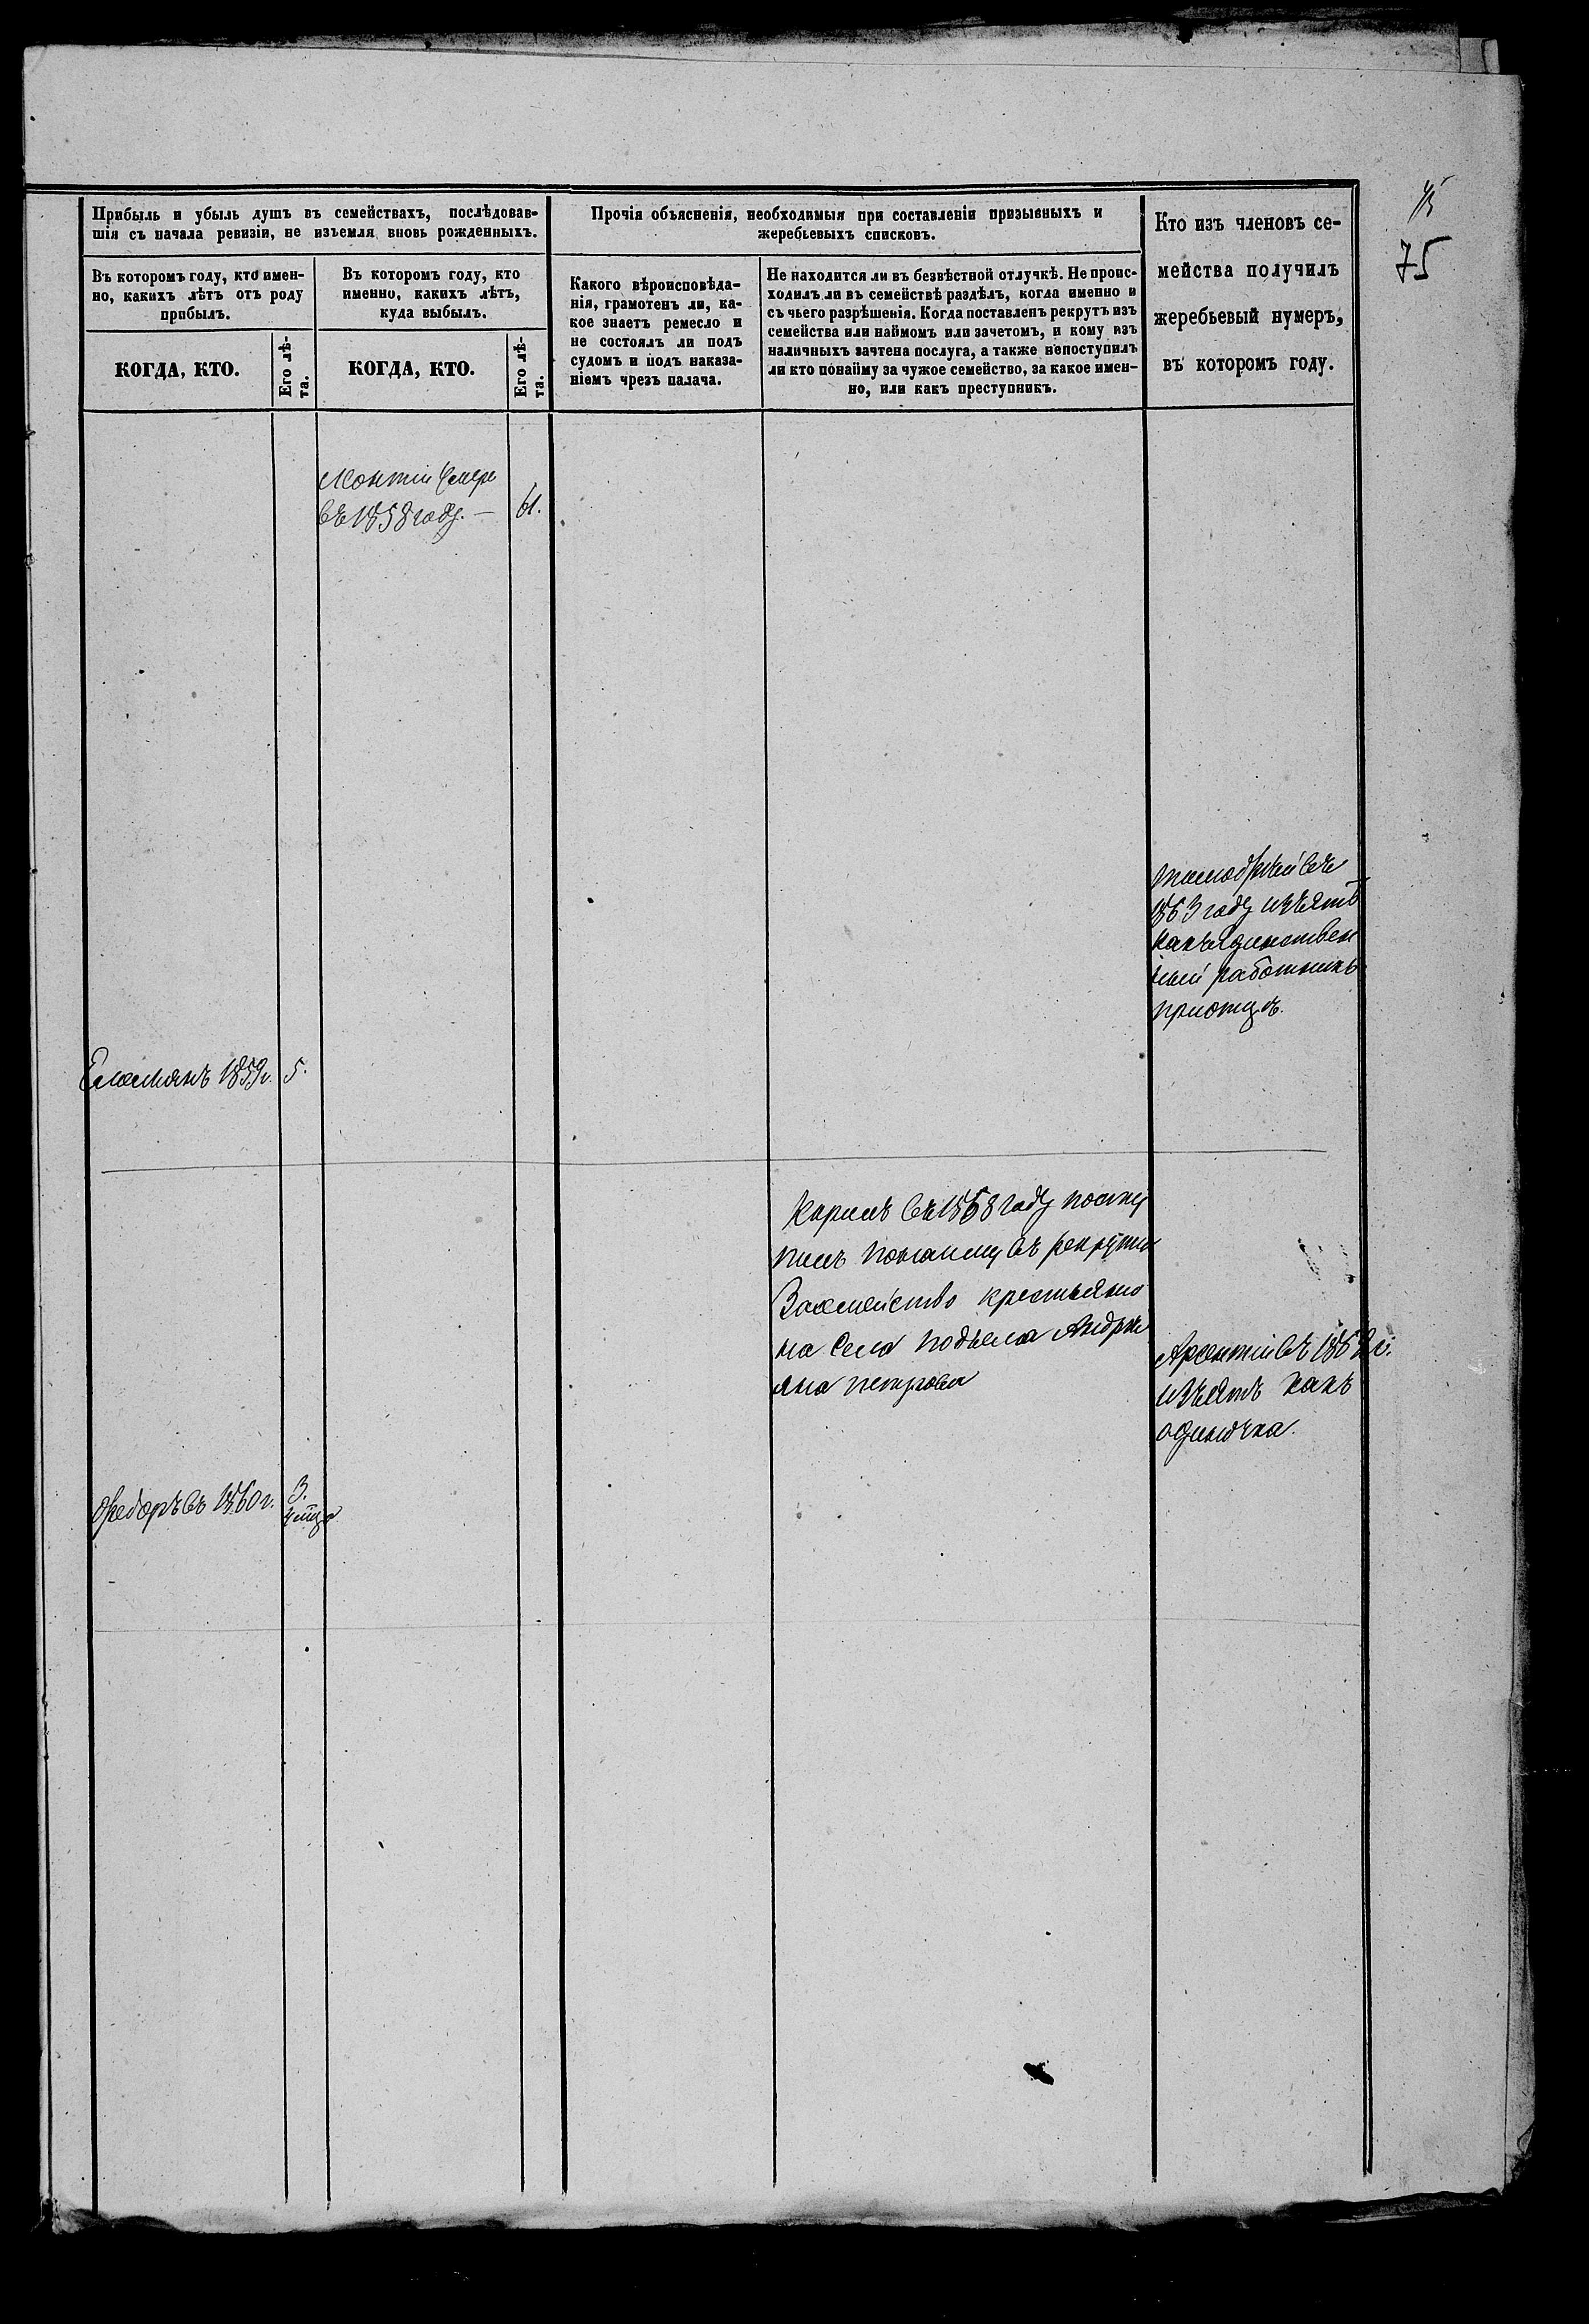 75
Прибыль и убыль душъ въ семействахъ, послѣдовав-
шія съ начала ревизіи, не изъемля вновь рожденныхъ.
Прочія объясненія, необходимыя при составленіи призывныхъ и
жеребьевыхъ списковъ.
Кто изъ членовъ се-
мейства получилъ
жеребьевый нумеръ,
въ которомъ году.
Въ которомъ году, кто имен-
но, какихъ лѣтъ отъ роду
прибылъ.
Въ которомъ году, кто
именно, какихъ лѣтъ,
куда выбылъ.
Какого вѣроисповѣда-
нія, грамотенъ ли, ка-
кое знаетъ ремесло и
не состоялъ ли подъ
судомъ и подъ наказа-
ніемъ чрезъ палача.
Не находится ли въ безвѣстной отлучкѣ. Не проис-
ходилъ ли въ семействѣ раздѣлъ, когда именно и
съ чьего разрѣшенія. Когда поставленъ рекрутъ изъ
семейства или наймомъ или зачетомъ, и кому изъ
наличныхъ зачтена послуга, а также непоступилъ
ли кто понайму за чужое семейство, за какое имен-
но, или какъ преступникъ.
КОГДА, КТО.
Его лѣ-
та.
КОГДА, КТО.
Его лѣ-
та.
въ 1858 году. —
61.
Тимофѣй въ
1863 году изъятъ
какъ единствен
ный работникъ
приотцѣ.
Емельянъ 1859 г. 5.
Киримъ въ 1858 году посту
пилъ понайму въ рекруты
Засемейство крестьяни
на села Подъела Андри
яна Петрова
Арсентій въ 1862 г.
изъятъ какъ
одиночка.
Федоръ въ 1860 г. 3.